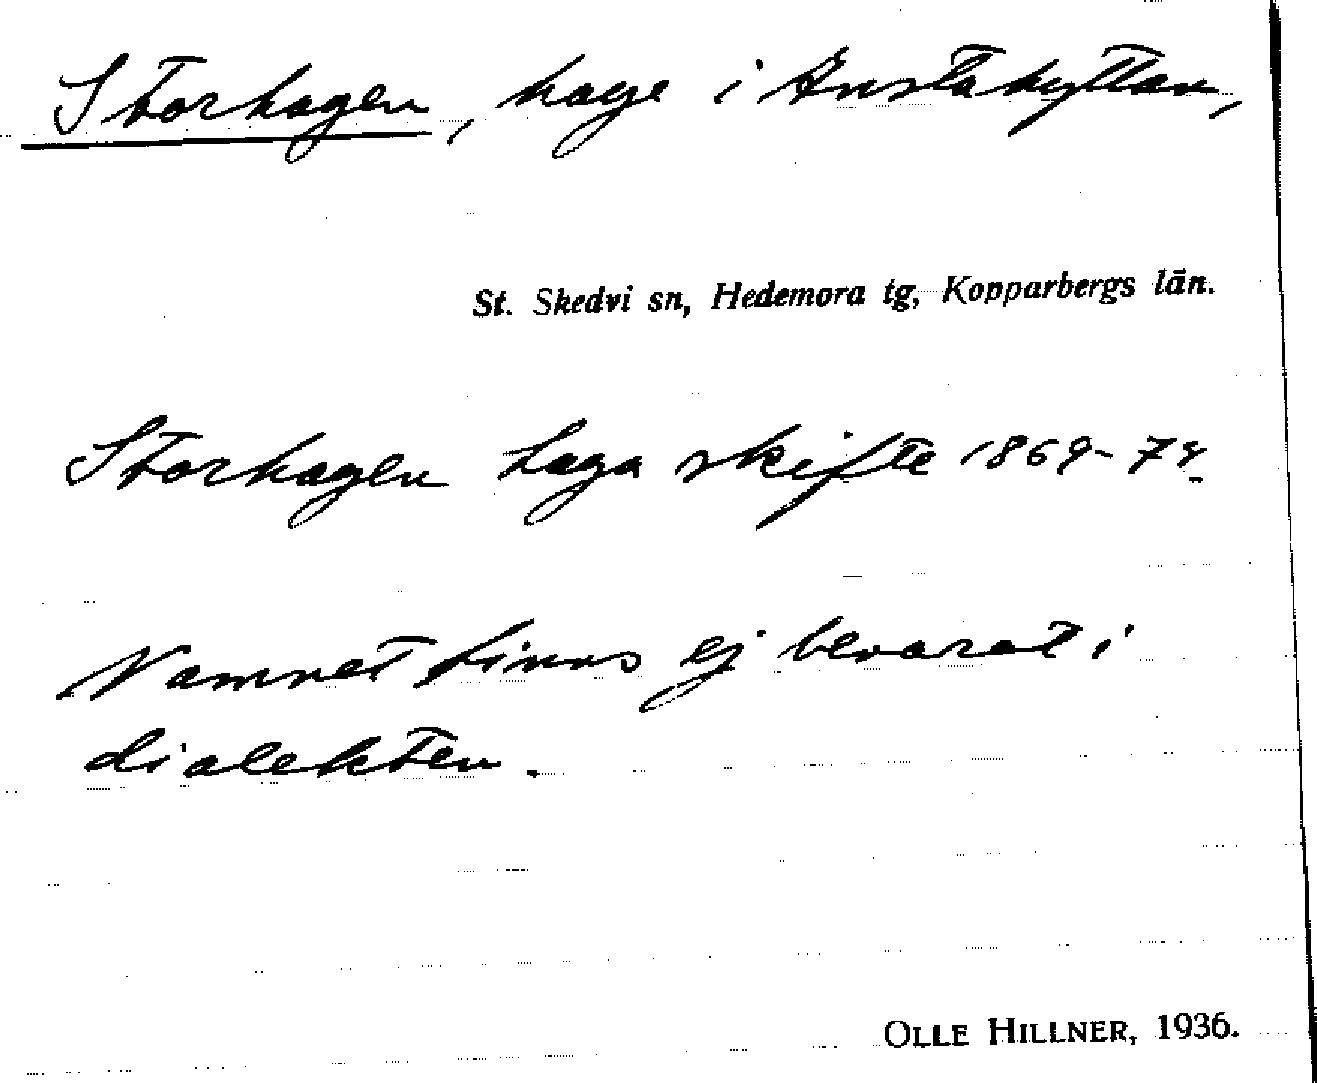 Storhagen, hage i Enstahyttan,
St. Skedvi sn, Hedemora tg, Kopparbergs län.
Storhagen Laga skifte 1869-74.
Namnet finns ej bevarat i
dialekten.
OLLE HILLNER, 1936.